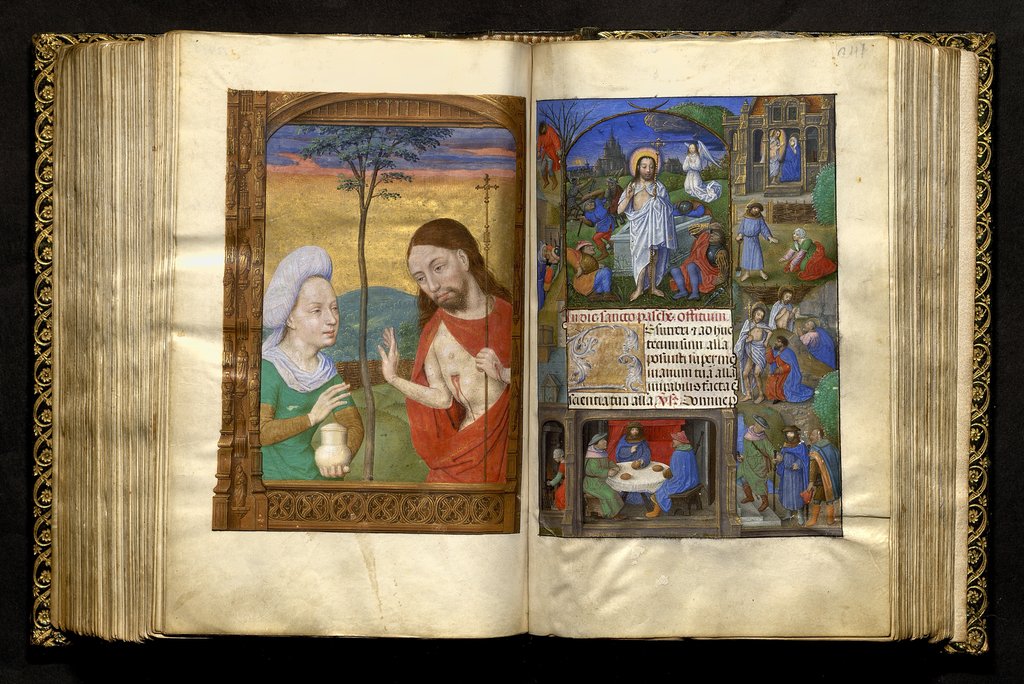 In die sancto pasche offitium
Resurrexi et ad huc
tecum sum alla
posuisti super me
manum tuā alla
mirabilis facta ē
scientia tua alla Vs̄ Domine p